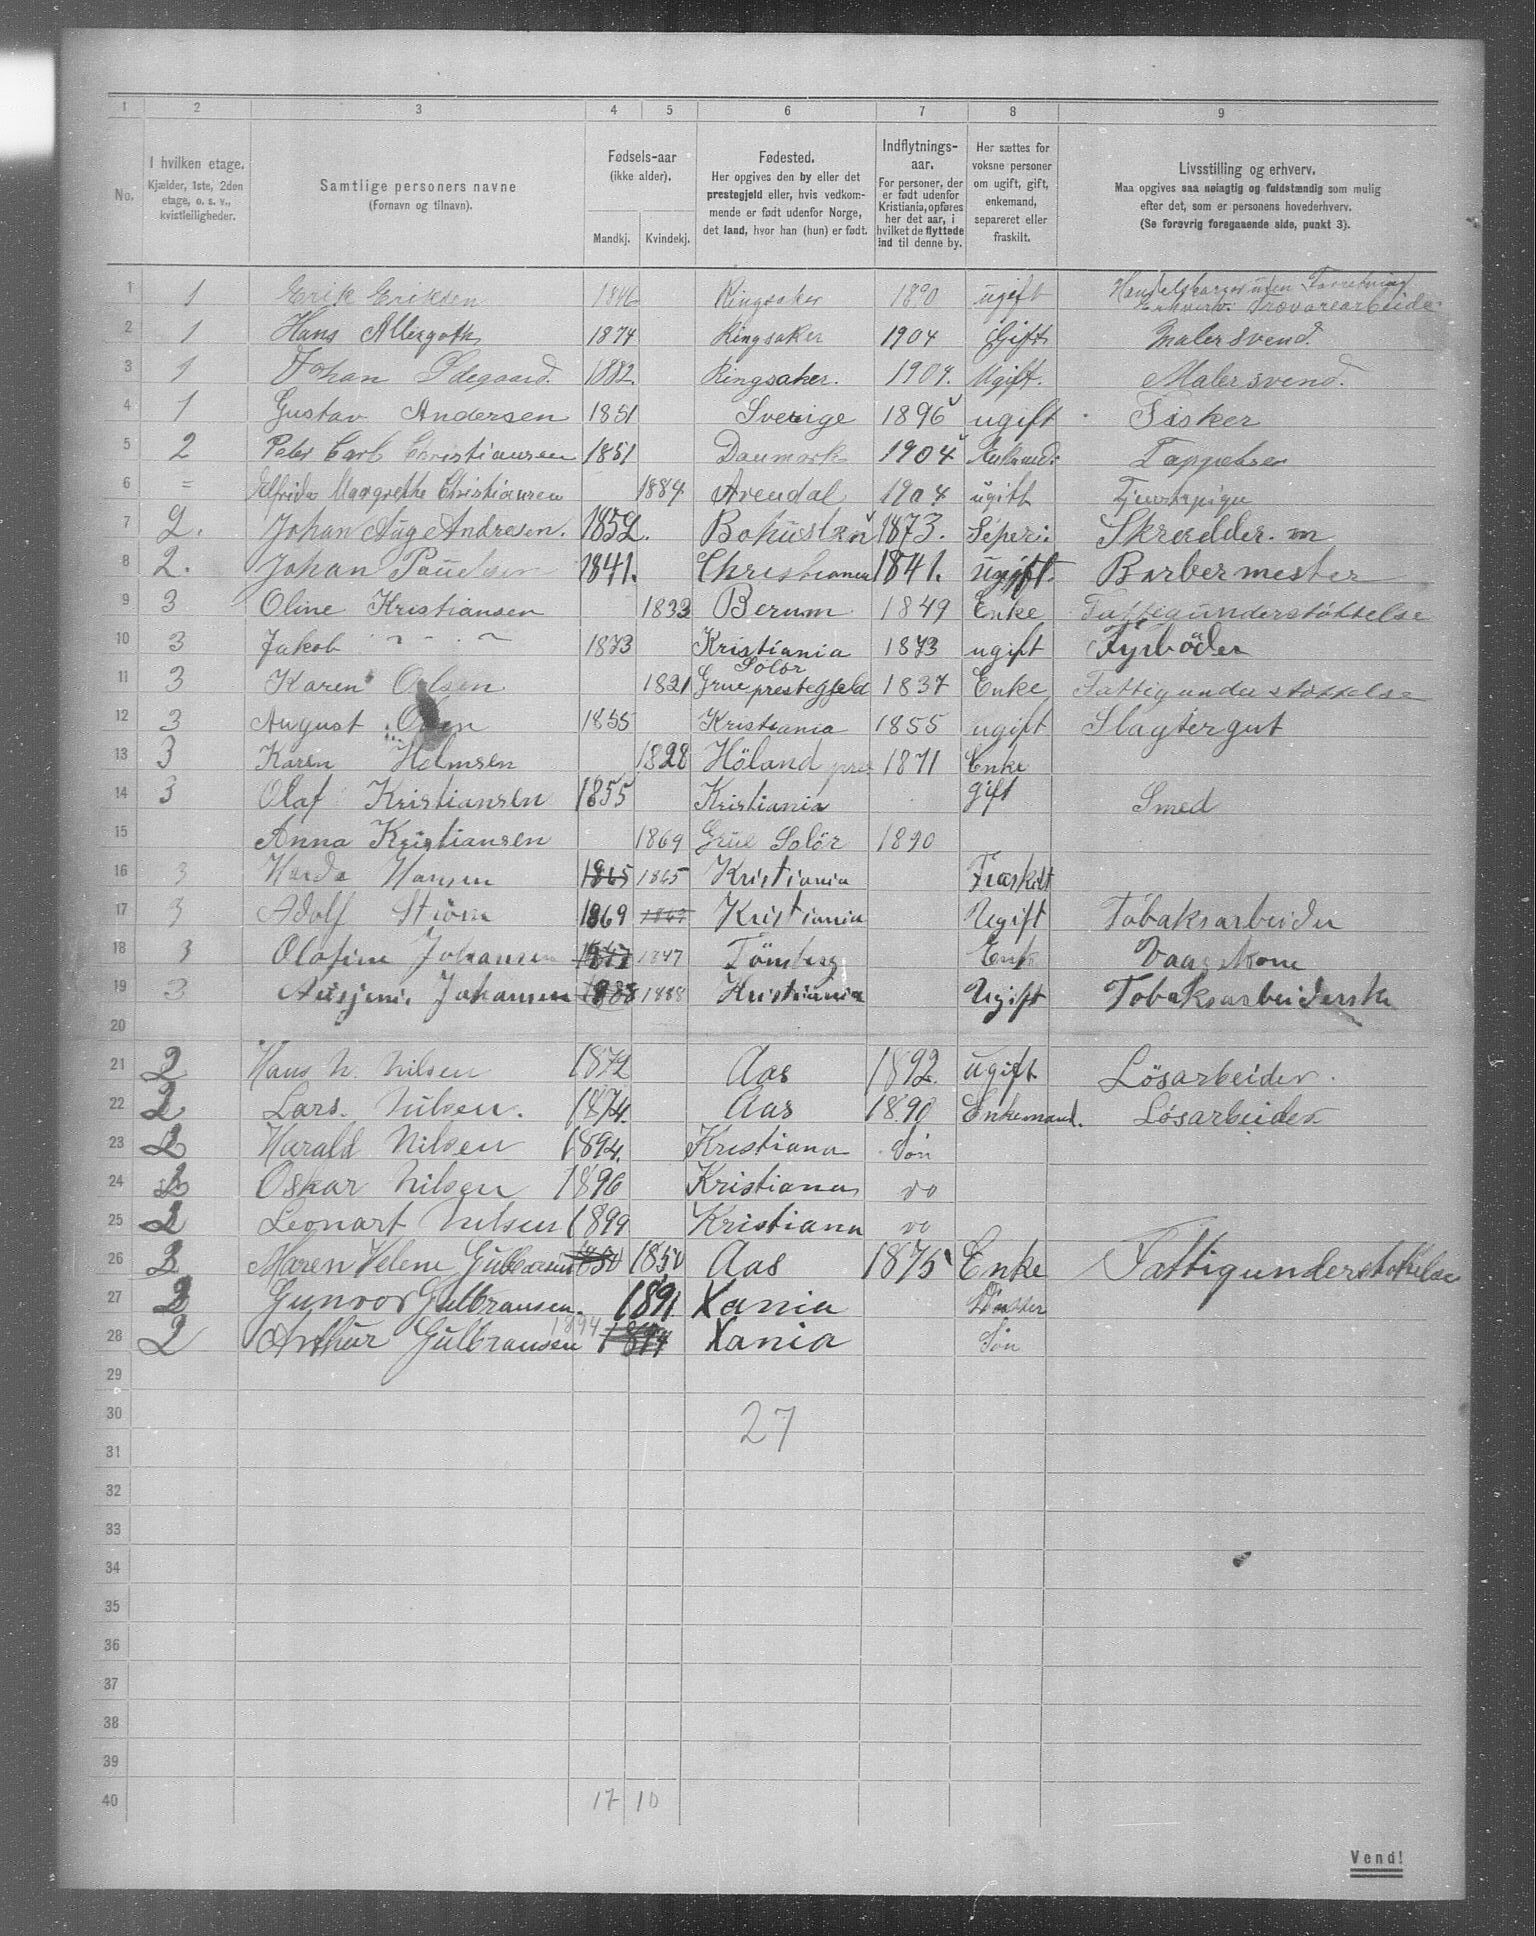 1 2 3 4 5 6 7 8 9
No.
I hvilken etage.
Kjælder, 1ste, 2den
etage, o. s. v.,
kvistleiligheder.
Samtlige personers navne
(Fornavn og tilnavn).
Fødsels-aar
(ikke alder).
Mandkj. Kvindekj.
Fødested.
Her opgives den by eller det
prestegjeld eller, hvis vedkom-
mende er født udenfor Norge,
det land, hvor han (hun) er født.
Indflytnings-
aar.
For personer, der
er født udenfor
Kristiania, opføres
her det aar, i
hvilket de flyttede
ind til denne by.
Her sættes for
voksne personer
om ugift, gift,
enkemand,
separeret eller
fraskilt.
Livsstilling og erhverv.
Maa opgives saa nøiagtig og fuldstændig som mulig
efter det, som er personens hovederhverv.
(Se forøvrig foregaaende side, punkt 3).
1 1 Erik Eriksen 1846 Ringsaker 1890 ugift uden Forretning
Erhverv: Trævarearbeider
2 1 Hans Allergoth 1874 Ringsaker 1904 Gift Malersvend.
3 1 Johan Ødegaard. 1882. Ringsaker. 1904. Ugift. Malersvend.
4 1 Gustav Andersen 1851 Sverige 1896 ugift Fisker
5 2 Peter Carl Christiansen 1851 Danmark 1904 Enkemd:
6 = Elfrida Margrethe Christiansen 1884 Arendal 1904 ugift Tjenstepige
7 2. Johan Aug Andresen. 1852. Bohuslän 1873. Seper: Skrædder. m
8 2. Johan Paulsen 1841. Christiania 1841. ugift. Barbermester
9 3 Oline Kristiansen 1833 Berum 1849 Enke Fattigunderstøttelse
10 3 Jakob " - " 1873 Kristiania 1873 ugift Fyrböder
11 3 Karen Olsen 1821 Solör
Grue prestegjeld 1837 Enke Fattigunderstøttelse
12 3 August Olsen 1855 Kristiania 1855 ugift Slagtergut
13 3 Karen Holmsen 1828 Höland pres 1871 Enke
14 3 Olaf Kristiansen 1855 Kristiania gift Smed
15 Anna Kristiansen 1869 Grue Solör 1890
16 3 Hansen 1865 1865 Kristiania Fraskilt
17 3 Adolf Strøm 1869 1869 Kristiania Ugift Tobaksarbeider
18 3 Olafine Johansen 1847 1847 Tönsberg Enke Vaaskone
19 3 Johansen 1888 1888 Kristiania Ugift Tobaksarbeiderske
20
21 2 Hans N. Nilsen 1872 Aas 1892. ugift Lösarbeider.
22 2 Lars. Nilsen. 1874. Aas 1890 Enkemand. Løsarbeider
23 2 Harald Nilsen 1894. Kristiana Sön
24 2 Oskar Nilsen 1896 Kristiana do
25 2 Leonart Nilsen 1899 Kristiana do
26 2 Maren Helene Gulbransen 1850 1850 Aas 1875 Enke Fattigunderstøttelse
27 2 Gunvor Gulbransen. 1891 Xania Datter
28 2 Arthur Gulbransen 1894 1894 Xania Sön
29
30 27
31
32
33
34
35
36
37
38
39
40 17 10
Vend!